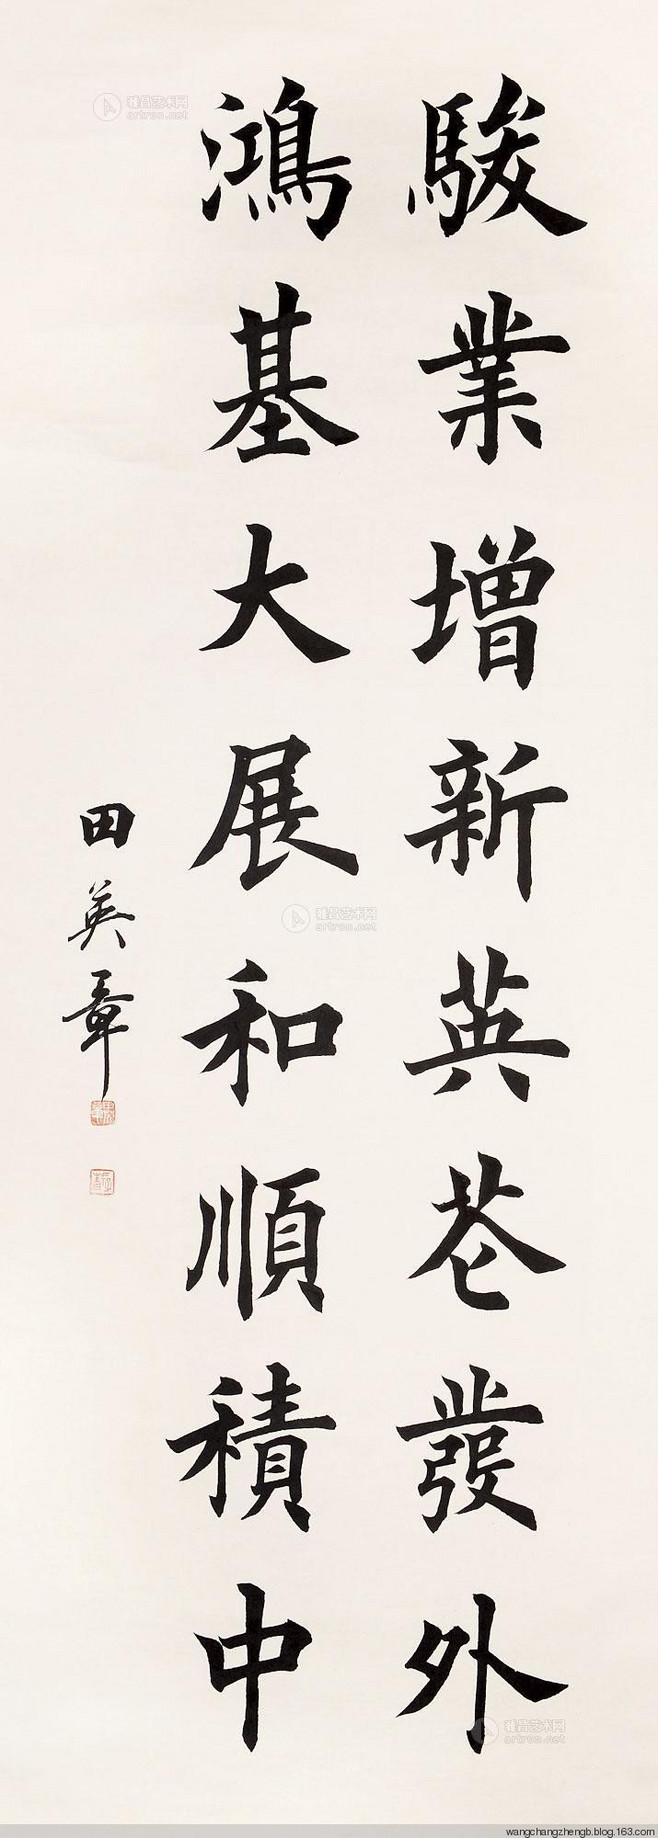 駿業增新英苍發外
鴻基大展和順積中
田英章
雅昌艺术网
artron.net
雅昌艺术网
artron.net
雅昌艺术网
artron.net
wangchangzhengb.blog.163.com